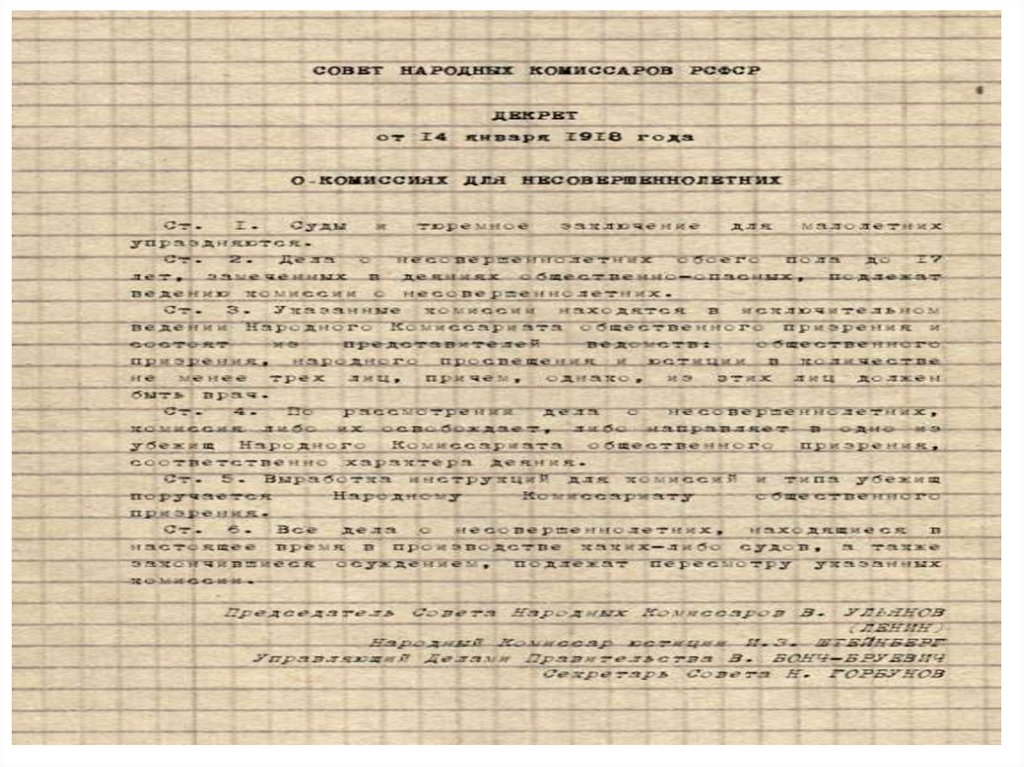 СОВЕТ НАРОДНЫХ КОМИССАРОВ РСФСР
ДЕКРЕТ
от 14 января 1918 года
О КОМИССИЯХ ДЛЯ НЕСОВЕРШЕННОЛЕТНИХ
Ст. 1. Суды и тюремное заключение для малолетних
упраздняются.
Ст. 2. Дела о несовершеннолетних обоего пола до 17
лет, замеченных в деяниях общественно-опасных, подлежат
ведению комиссии о несовершеннолетних.
Ст. 3. Указанные комиссии находятся в исключительном
ведении Народного Комиссариата общественного призрения и
состоят из представителей ведомств: общественного
призрения, народного просвещения и юстиции в количестве
не менее трех лиц, причем, однако, из этих лиц должен
быть врач.
Ст. 4. По рассмотрении дела о несовершеннолетних,
комиссия либо их освобождает, либо направляет в одно из
убежищ Народного Комиссариата общественного призрения,
соответственно характера деяния.
Ст. 5. Выработка инструкций для комиссий и типа убежищ
поручается Народному Комиссариату общественного
призрения.
Ст. 6. Все дела о несовершеннолетних, находящиеся в
настоящее время в производстве каких-либо судов, а также
закончившиеся осуждением, подлежат пересмотру указанных
комиссии.
Председатель Совета Народных Комиссаров В. УЛЬЯНОВ
(ЛЕНИН)
Народный Комиссар юстиции И.З. ШТЕЙНБЕРГ
Управляющий Делами Правительства В. БОНЧ-БРУЕВИЧ
Секретарь Совета Н. ГОРБУНОВ